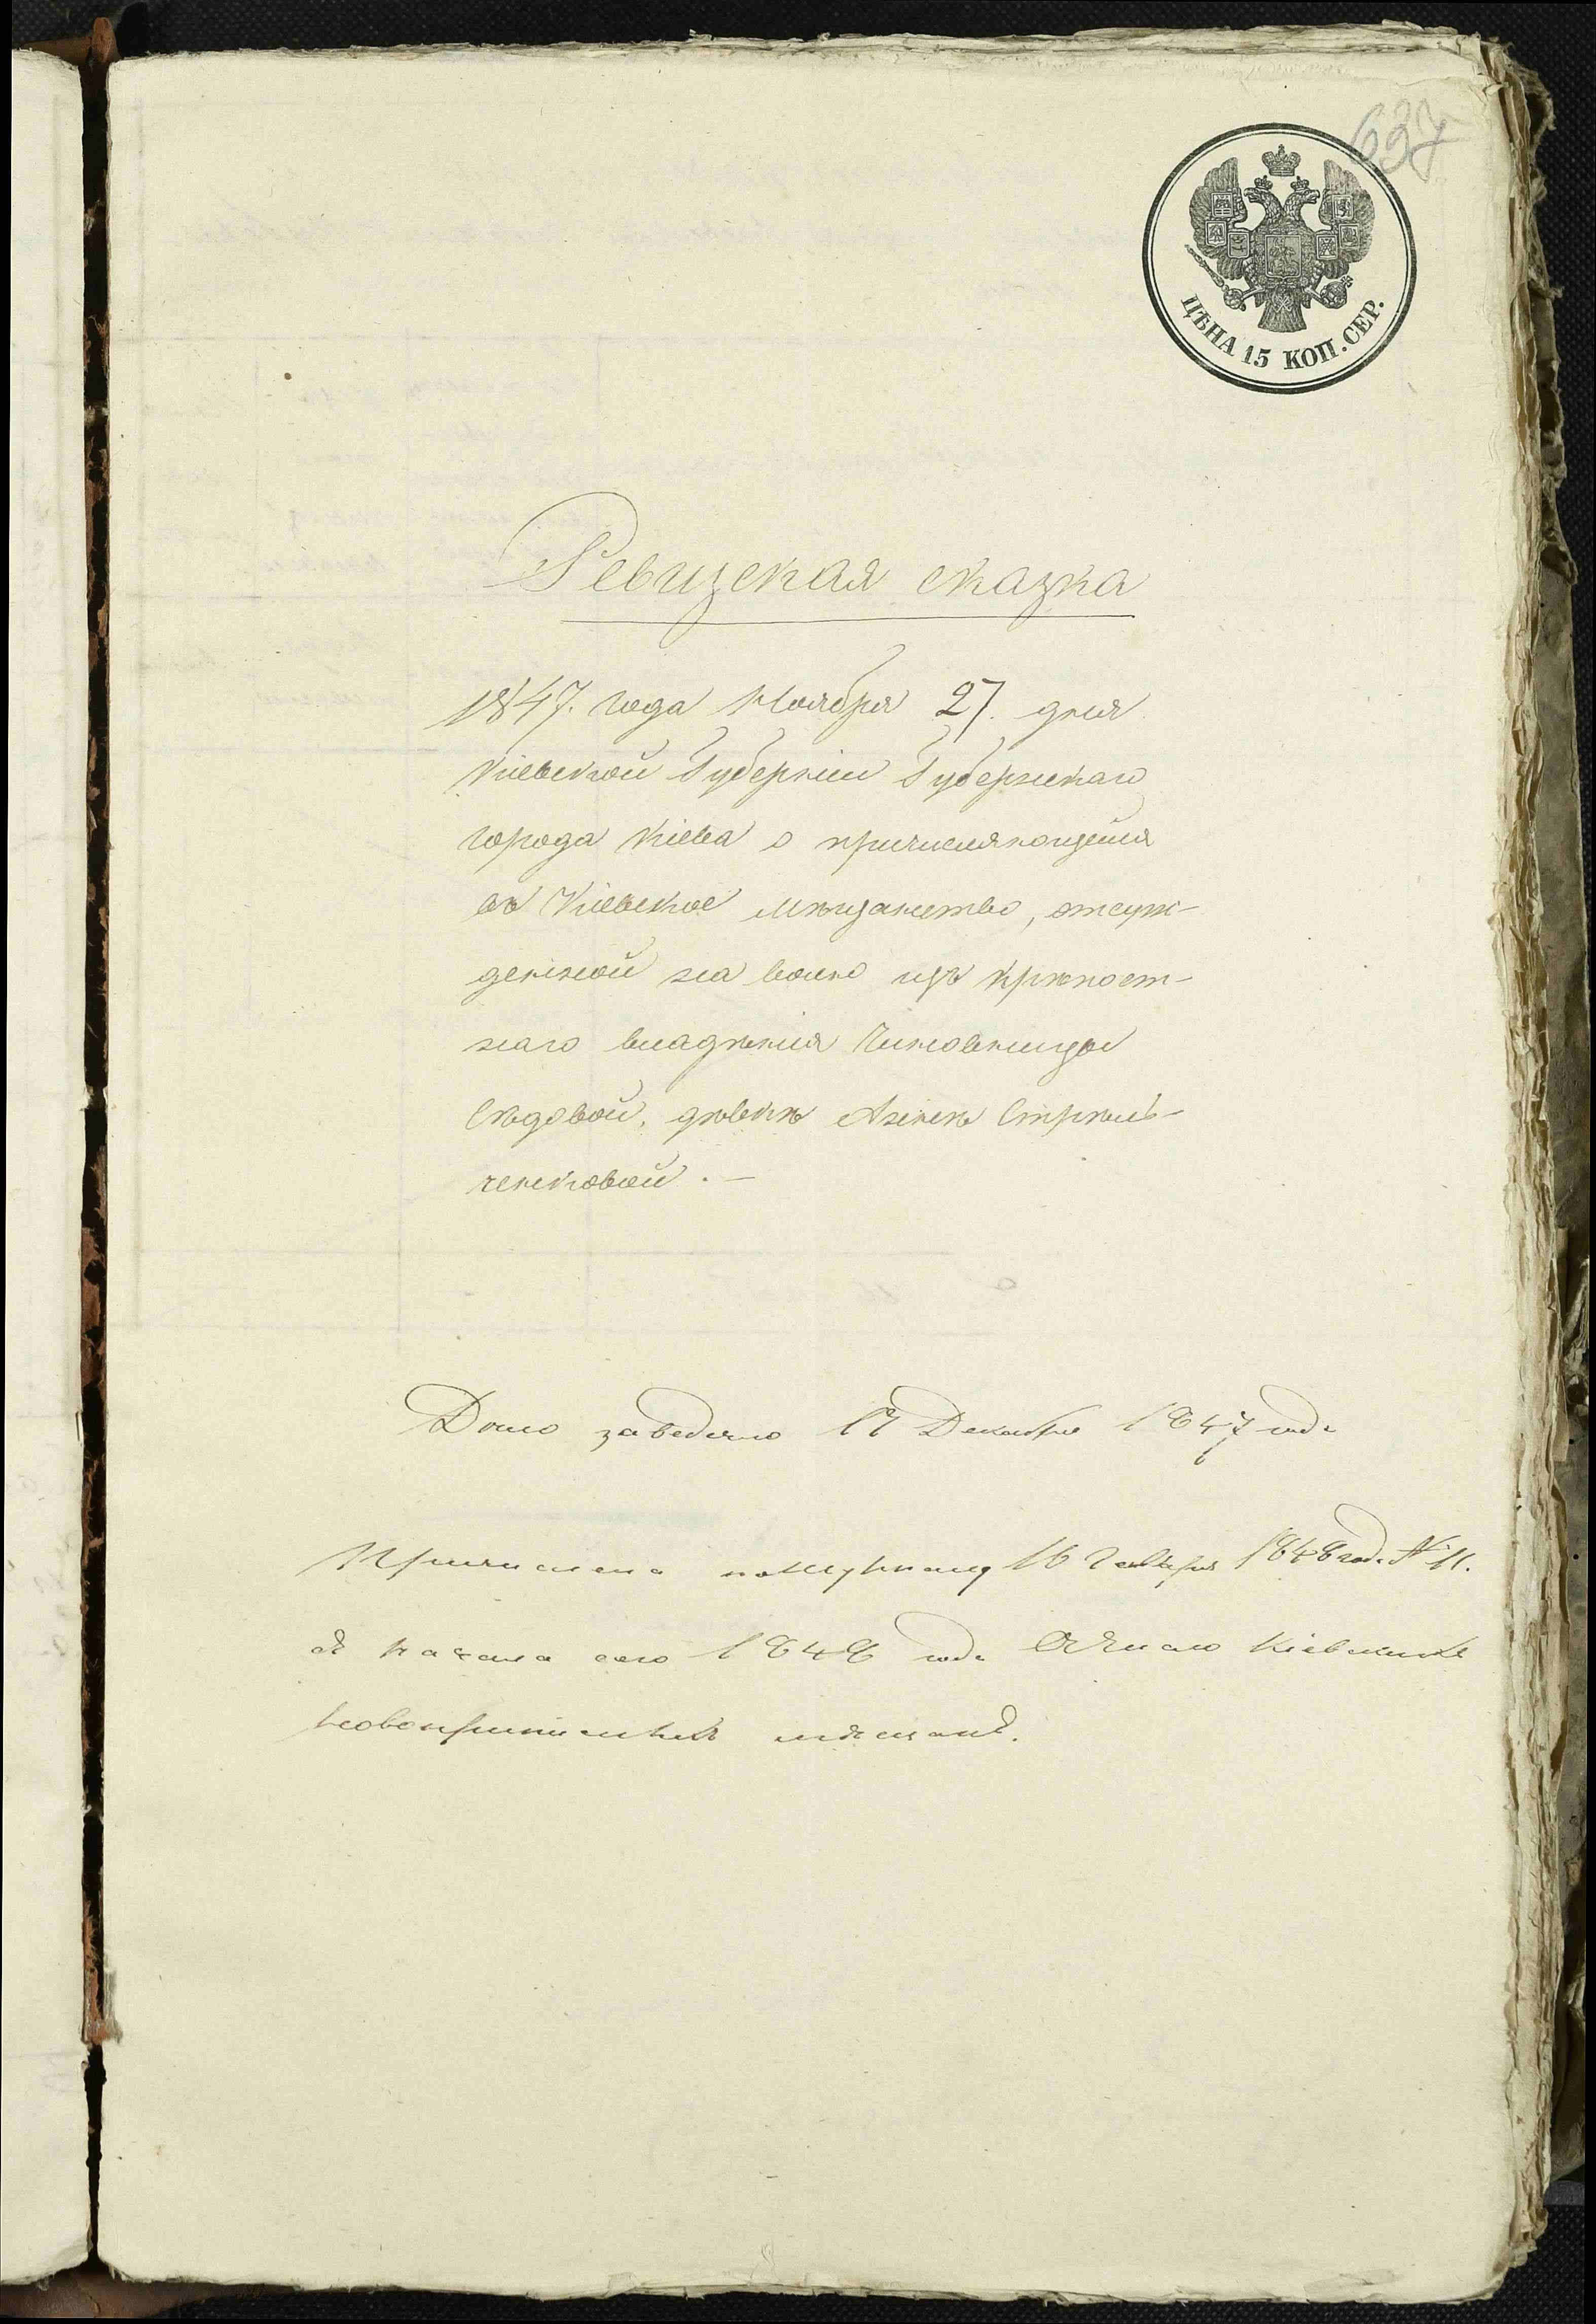 637
ЦѢНА 15 КОП. СЕР.
Ревизская сказка
1847. года Ноября 27. дня
Кіевской Губерніи Губернскаго
города Кіева о причисляющейся
въ Кіевское мѣщанство, отсуж-
денной на волю изъ крѣпост-
наго владѣнія Чиновницы
Сѣдовой, дѣвкѣ Аннѣ Стрѣль-
ченковой. —
Дѣло заведено 17 Декабря 1847 года
Причислена по журналу 16 Генваря 1848 года № 11.
съ начала сего 1848 года въ число Кіевскихъ
новопричисленныхъ мѣщанъ.